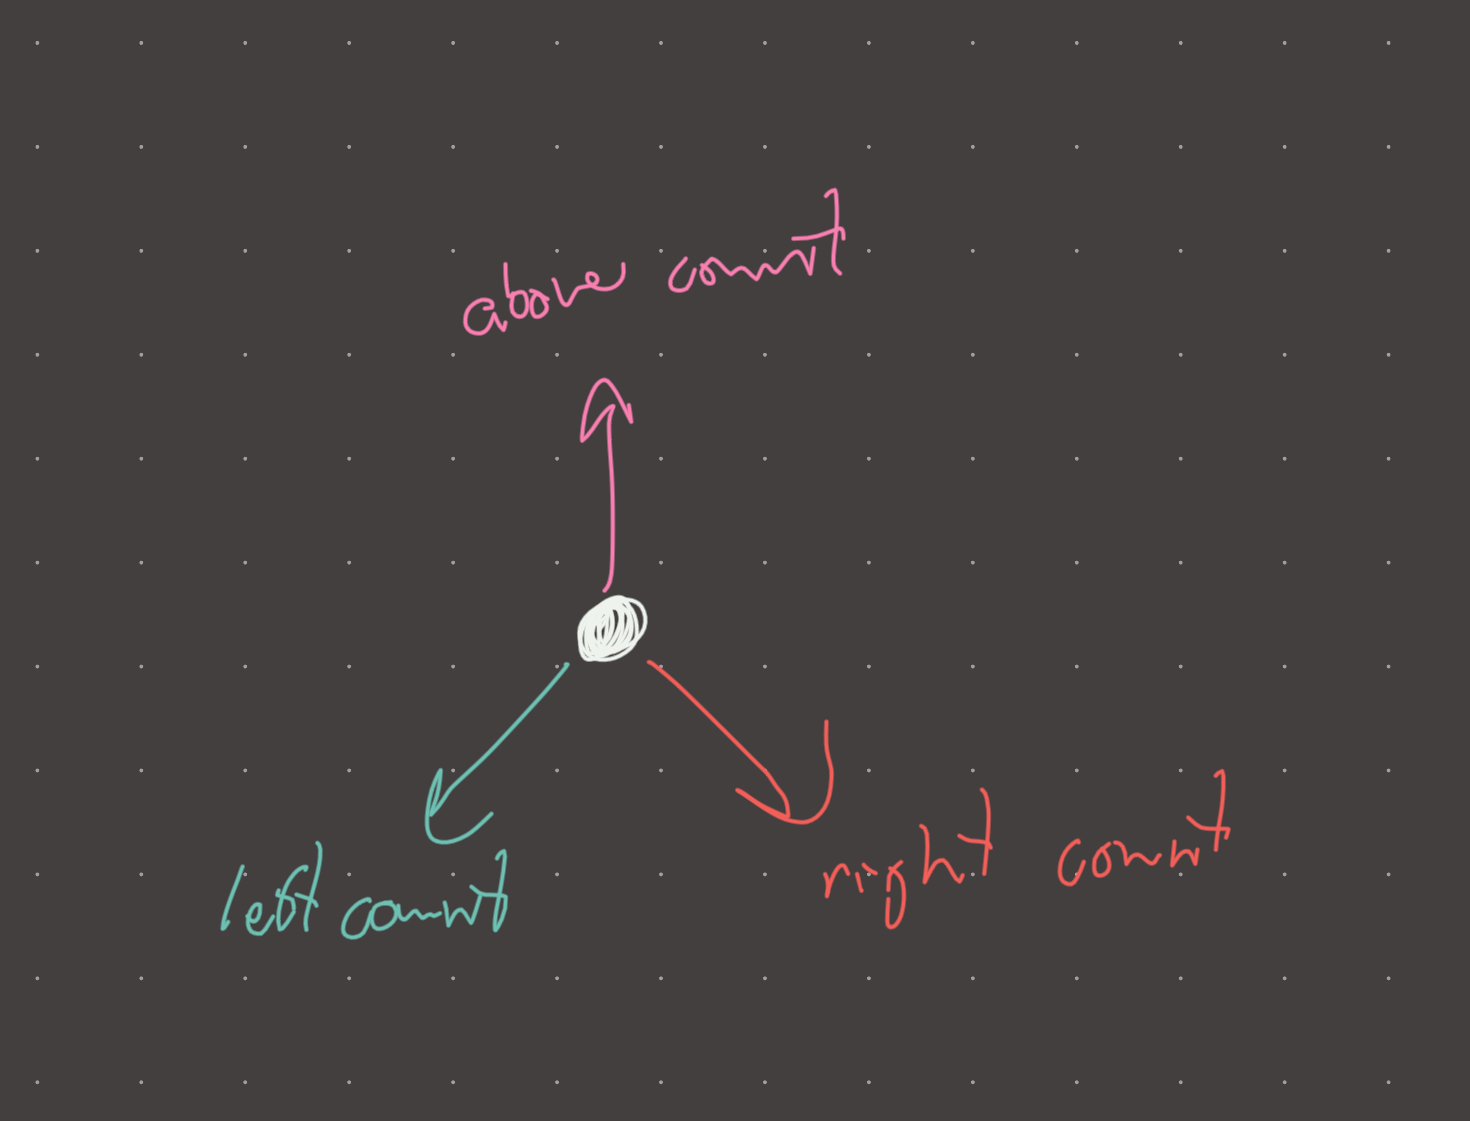 above commit
left commit
right commit